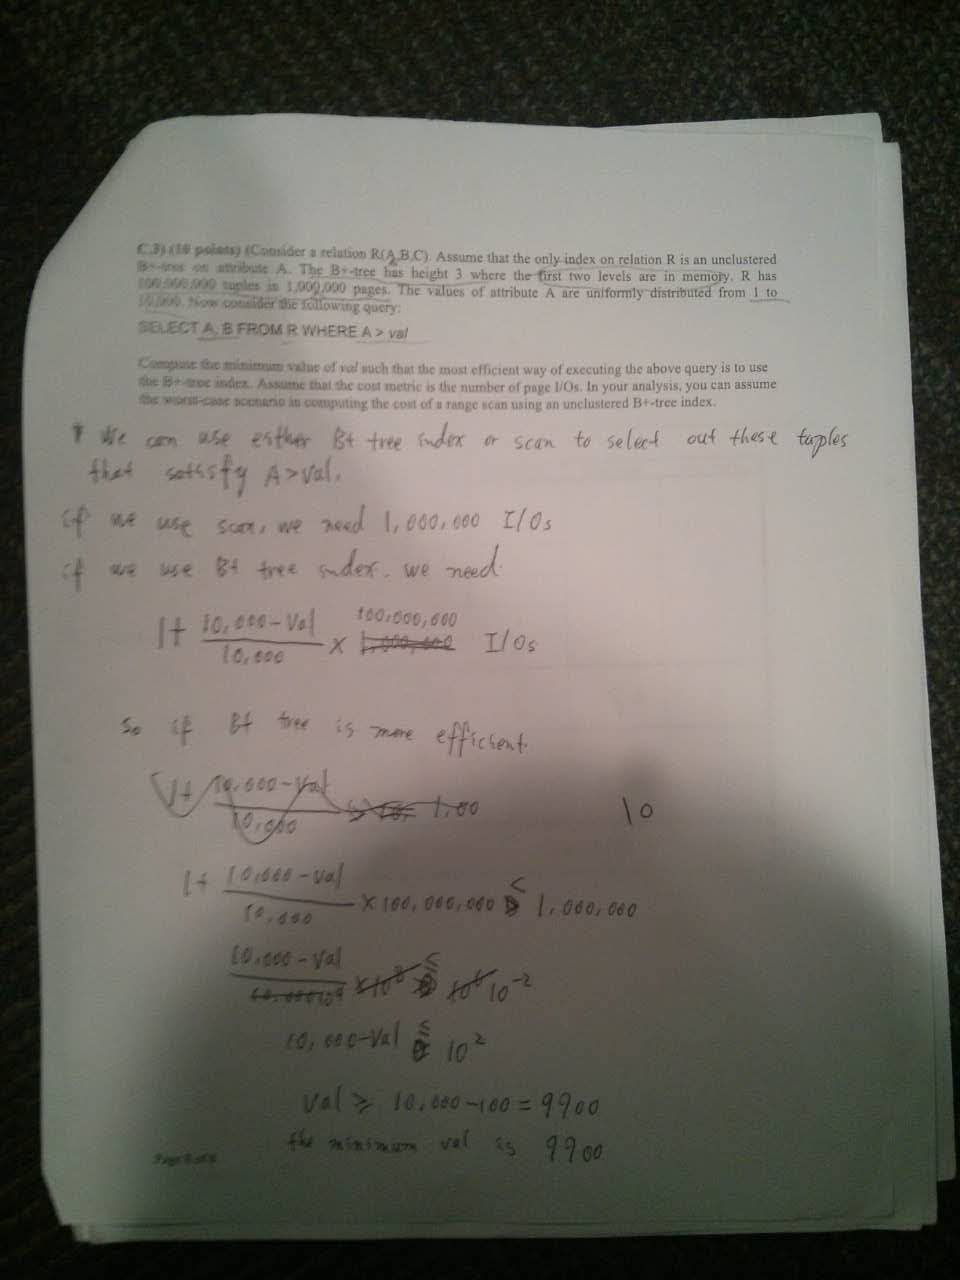 C.3) (10 points) (Consider a relation R(A,B,C). Assume that the only index on relation R is an unclustered
B+-tree on attribute A. The B+-tree has height 3 where the first two levels are in memory. R has
100,000,000 tuples in 1,000,000 pages. The values of attribute A are uniformly distributed from 1 to
10,000. Now consider the following query:
SELECT A, B FROM R WHERE A > val
Compute the minimum value of val such that the most efficient way of executing the above query is to use
the B+-tree index. Assume that the cost metric is the number of page I/Os. In your analysis, you can assume
the worst-case scenario in computing the cost of a range scan using an unclustered B+-tree index.
We can use either B+ tree index or scan to select out these tuples
that satisfy A>val.
if we use scan, we need 1,000,000 I/Os
if we use B+ tree index. we need
1+ (10,000-val)/10,000 × 100,000,000 I/Os
So if B+ tree is more efficient.
1+ (10,000-val)/10,000 1,00
10
1+ (10,000-val)/10,000 ×100,000,000 < 1,000,000
10,000-val ≤ 10^-2
10,000-val ≤ 10^2
val ≥ 10,000-100=9900
the minimum val is 9900